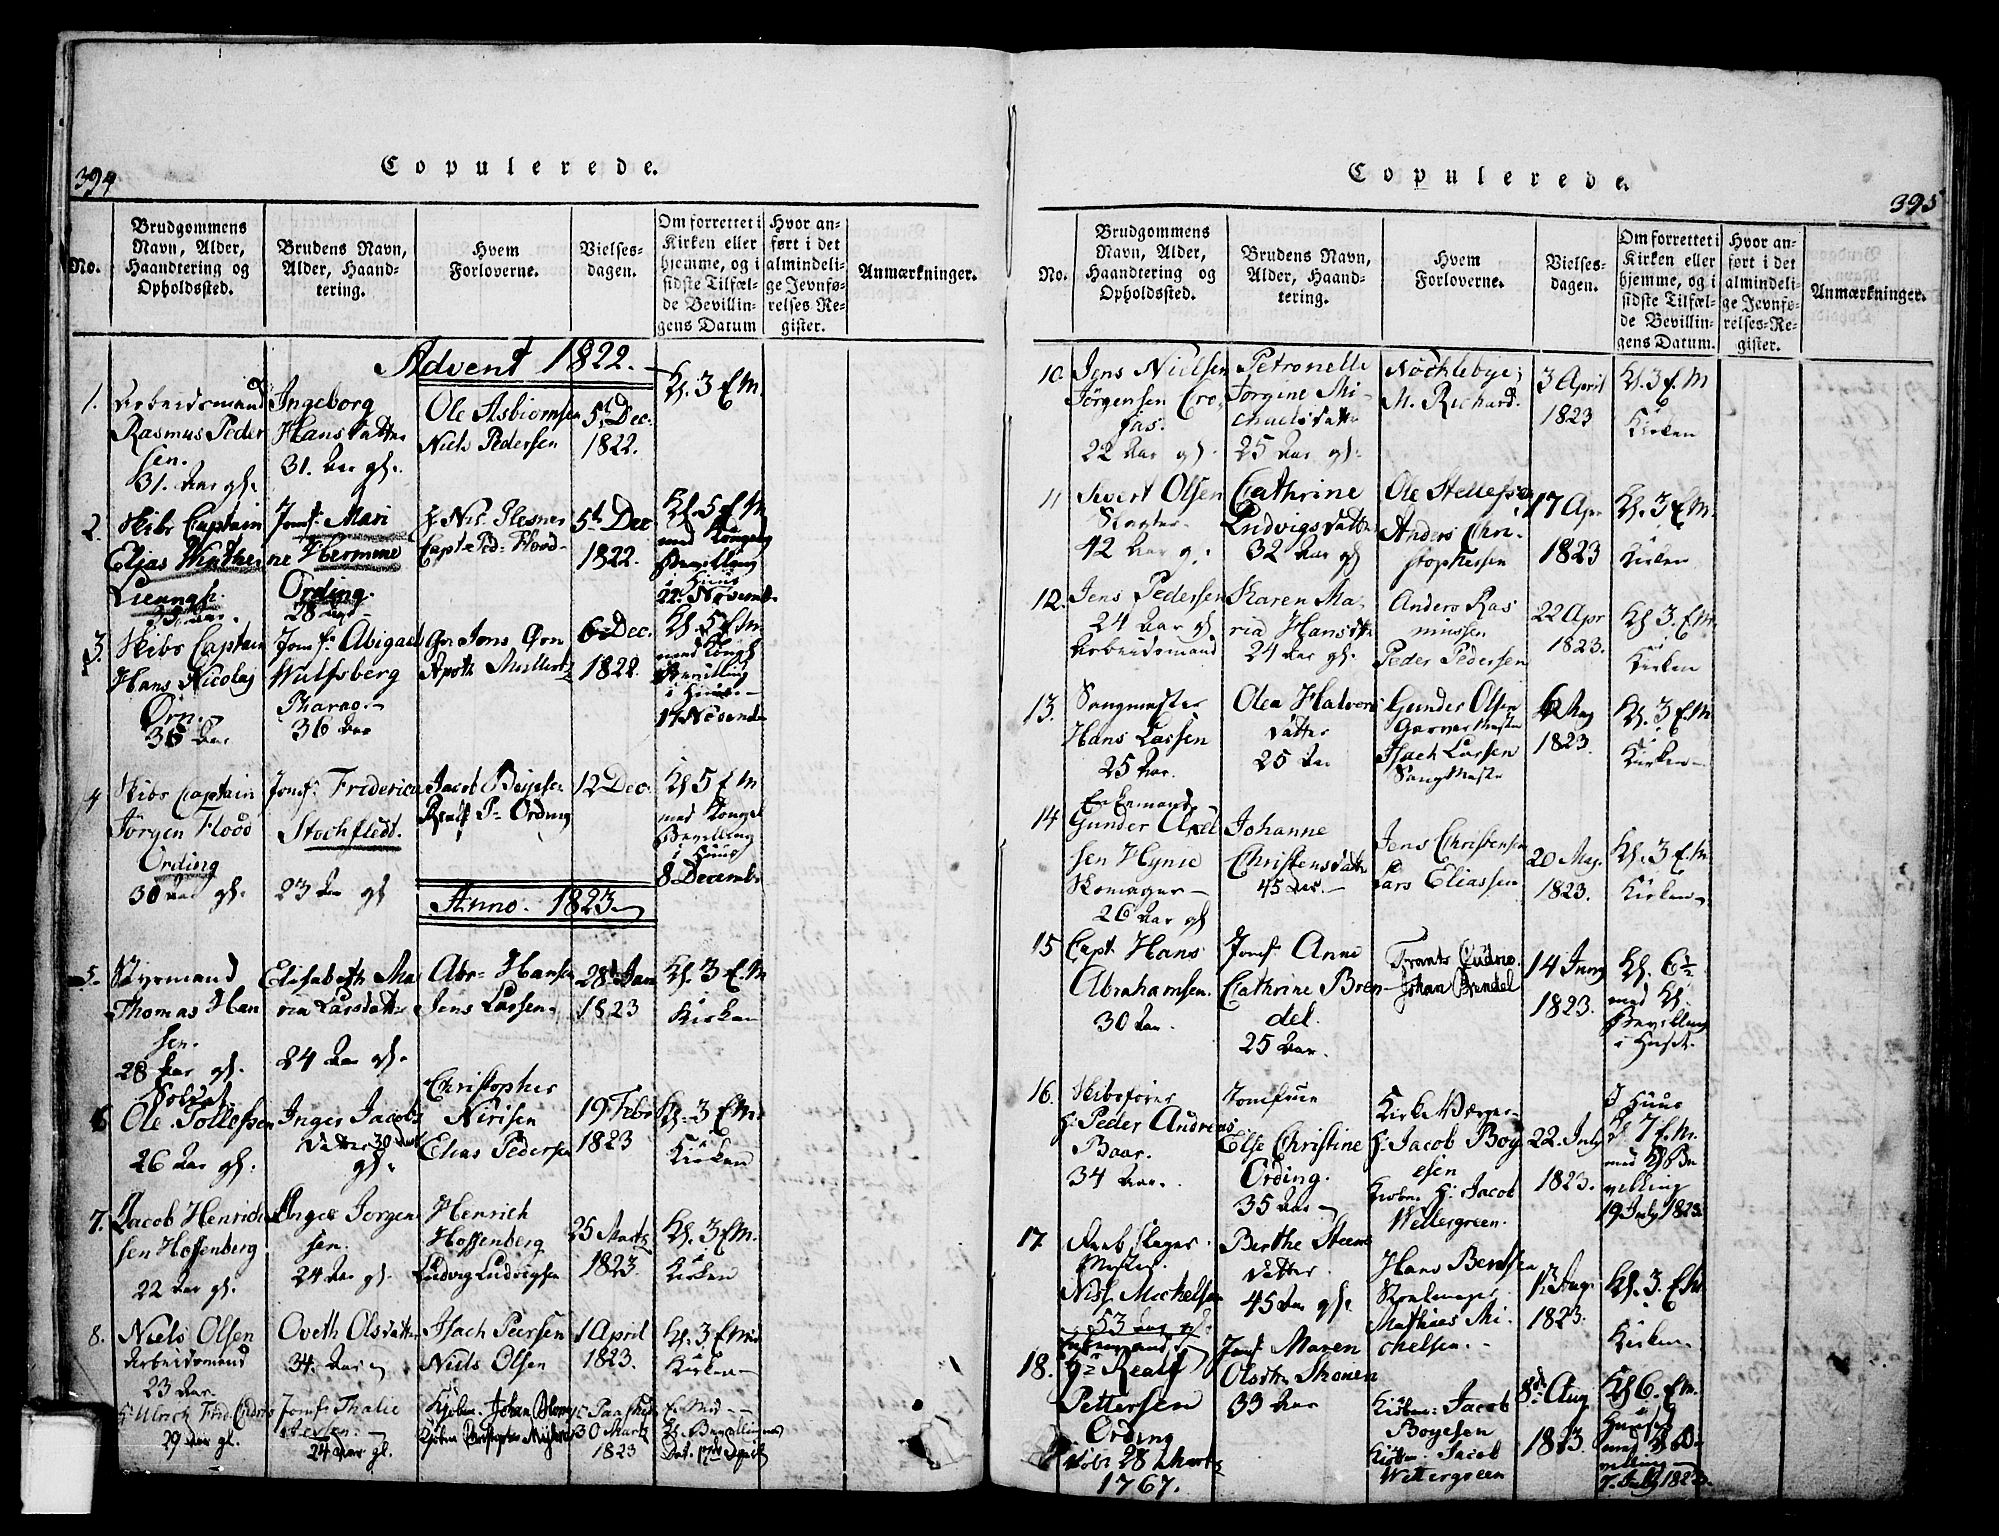 394
Copulerede.
No.
Brudgommens Navn, Alder, Haandtering og Opholdssted.
Brudens Navn, Alder, Haandtering.
Hvem Forloverne.
Vielsesdagen.
Om forrettet i Kirken eller hjemme, og i sidste Tilfælde Bevillingens Datum
Hvor anført i det almindelige Jevnførelses Register.
Anmærkninger.
Advent 1822.
1.
Arbeidsmand
Rasmus Peder
sen.
31. Aar gl.
Ingeborg
Hansdatter
31. Aar gl.
Ole Asbiornsen
Niels Pedersen
5t Dec.
1822.
Kl. 3 E.M.
2.
Skibs Captain
Elias
Jomf. Mari
ne Hermine
Ording.
28 Aar
Capt Ped. Flood
5t Dec
1822.
Kl. 5 E.M
med Kongelig
Bevilling
i Huus
22. Novemb.
3.
Skibs Captain
Hans Nicolay
Örn.
36 Aar
Jomf. Abigael
Wulfsberg
Tharao.
36 Aar
Jens Örn
Apoth Mullertz
6 Dec.
1822.
Kl. 5 E.M.
med Kongl
Bevilling
i Huus.
17 Novemb
4
Skibs Captain
Jörgen Flood
Ording
30 Aar gl.
Jomf. Frederica
Stochfledt.
23 Aar gl
Jacob Boyesen
Realf P. Ording
12 Dec.
Kl 5 E M
med Kongel
Bevilling
i Huus
8 Decembr
Anno. 1823.
5.
Styrmand
Thomas Han
sen.
28 Aar gl.
Elisabeth Ma
ria Larsdatter
24 Aar gl.
Abr. Hansen
Jens Larsen
28t Jan
1823
Kl. 3 E.M
i
Kirken
6
Soldat.
Ole Tollefsen
26 Aar gl.
Inger Jacobs
datter 30 Aar
gl.
Christopher
Nirisen
Elias Pedersen
19 Febr
1823
Kl. 3 E.M.
i
Kirken
7.
Jacob Henrich
sen Hoffenberg
22 Aar gl.
Inger Jorgen
sen.
24 Aar gl.
Henrich
Hoffenberg
Ludvig Ludvigsen
25 Marts
1823.
Kl. 3 E.M.
i
Kirken
8.
Niels Olsen
Arbeidsmand
23 Aar.
Oveth Olsdatter
34. Aar
Isach Peersen
Niels Olsen
1 April
1823.
Kl. 3 E.M
i
Kirken
Ulrich Fred
29 Aar gl.
Jomf. Thalie
24 Aar gl.
Kjøbm. Johan Blom
Kjøbm
30 Marts
1823
395
Copulerede.
No.
Brudgommens Navn, Alder, Haandtering og Opholdssted.
Brudens Navn, Alder, Haandtering.
Hvem Forloverne.
Vielsesdagen.
Om forrettet i Kirken eller hjemme, og i sidste Tilfælde Bevillingens Datum.
Hvor anført i det almindelige Jevnførelses-Register.
Anmærkninger.
10.
Jens Nielsen
Jörgensen Cro
jas.
22 Aar gl.
Petronelle
Jorgine Mi
chaelsdatter
25 Aar gl.
Nöchlebye
M. Richard.
3 April
1823
Kl. 3 E.M
i
Kirken
11
Sivert Olsen
Slagter.
42 Aar g.
Cathrine
Ludvigsdatter
32 Aar gl
Ole Stellefsen
Anders Chri
stophersen
17 Apr
1823
Kl. 3 E.M.
i
Kirken
12.
Jens Pedersen
24 Aar gl
Arbeidsmand
Karen Ma
ria Hansdtr
24 Aar gl.
Anders Ras
mussen
Peder Pedersen
22 Apr
1823.
Kl 3. E.M.
i
Kirken
13.
Sangmester
Hans Larsen
25 Aar.
Olea Halvors
datter
25 Aar
Gunder Olsen
Garvermester
Isach Larsen
6 May
1823.
Kl. 3 E.M.
i
Kirken
14
Enkemand
Gunder Axel
sen Hynie
Skomager
26 Aar gl
Johanne
Christensdatter
45 Aar.
Jens Christensen
Lars Eliassen
20 May.
1823.
Kl. 3 E.M.
i
Kirken
15
Capt. Hans
Abrahamsen.
30 Aar.
Jomf. Anne
Cathrine Bren
del.
25 Aar.
Frants Cudrio.
Johan Brendel
14 Juny
1823.
Kl. 6½
med Kl.
Bevilling
i Huset.
16.
Skibsförer
Hr. Peder Andreas
Baar.
34 Aar.
Jomfrue
Else Christine
Ording.
35 Aar
Kirke Værger
Hr. Jacob Boy
esen
Kiöbm. Hr. Jacob
Wettergreen.
22. July
1823.
I Huus
Kl 7 E.M.
med Kl Be
villing
19 July 1823.
17.
Reebslager
Mester.
Niss. Michelsen
53 Aar gl
Berthe Steens
datter.
45 Aar gl.
Hans Berntsen
Mathies Mi
chelsen.
12 Aug.
1823.
Kl. 3. E.M.
i
Kirken
18.
Enkemand
Hr Realf
Pettersen
Ording
födt 28 Marts
1767.
Jomf. Maren
Olsdtr Skonen
33 Aar
Kiöbm. Jacob
Boyesen
Kiöbm. Jacob
Wettergreen
8de Aug
1823.
Kl 6. E.M.
i
Huuset
med Kl Be
villing
7. July 1823.